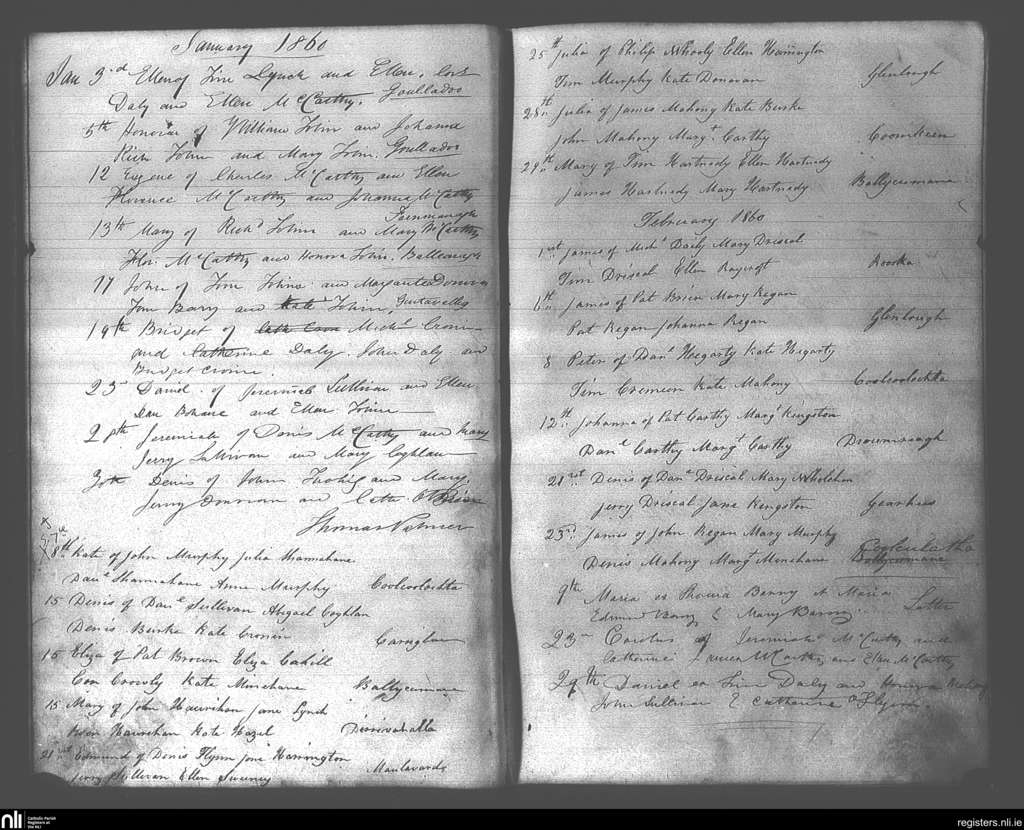 January 1860
Jan 3rd Ellen of Tim Lynch and Ellen.
Daly and Ellen McCarthy. Goulladoo
5th Honora of William Tobin and Johanna
Rich Tobin and Mary Tobin. Goulladoo
12 Eugene of Charles McCarthy and Ellen
Florence McCarthy and Johanna McCarthy
13th Mary of Richd Tobin and Mary McCarthy
Flor. McCarthy and Honora Tobin.
17 John of Tom Tobin and Margaret Donovan
Tom Barry and Kate Tobin,
19th Bridget of Michl Cronin
and Catherine Daly. John Daly and
Bridget Cronin.
23rd Daniel of Jeremiah Sullivan and Ellen
Dan Bohane and Ellen Tobin
28th Jeremiah of Denis McCarthy and Mary
Jerry Sullivan and Mary Coghlan
30th Denis of John and Mary
Jerry Donovan and Cathe O'Brien
Thomas
8th Kate of John Murphy Julia Shannahane
Danl Shannahane Anne Murphy Coolcoolachta
15 Denis of Danl Sullivan Abigael Coghlan
Denis Burke Kate Cronin Cariglan
15 Eliza of Pat Brown Eliza Cahill
Con Crowly Kate Minehane Ballycumane
15 Mary of John Hourihan Jane Lynch
Hourihan Kate Hazel
21st Edmund of Denis Flynn Jone Harrington
Jerry Sullivan Ellen Sweeney Maulavarda
25th Julia of Philip McHooly Ellen Harrington
Tim Murphy Kate Donovan Glenlough
28th Julia of James Mahony Kate Burke
John Mahony Margt Carthy Coomkeen
29th Mary of Tim Hartnedy Ellen Hartnedy
James Hartnedy Mary Hartnedy Ballycumane
February 1860
1st James of Michl Daily Mary Driscol
Tim Driscol Ellen Roycroft Rooska
6th James of Pat Brien Mary Regan
Pat Regan Johanna Regan Glenlough
8 Peter of Danl Hegarty Kate Hegarty
Tim Cremeen Kate Mahony Coolcoolachta
12th Johanna of Pat Carthy Margt Kingston
Danl Carthy Margt Carthy
21st Denis of Danl Driscol Mary
Jerry Driscol Jane Kingston Gearhies
23rd James of John Regan Mary Murphy
Denis Mahony Margt Minehane Ballycumane
9th Maria ex Barry et Maria
Edmund Barry & Mary Barry. Letter
23rd Carolus of Jeremiah McCarthy and
Catherine McCarthy and Ellen McCarthy
29th Daniel ex Tim Daly and Honora
John Sullivan & Catherine O'Flynn
nli Catholic Parish
Registers at
the NLI
registers.nli.ie